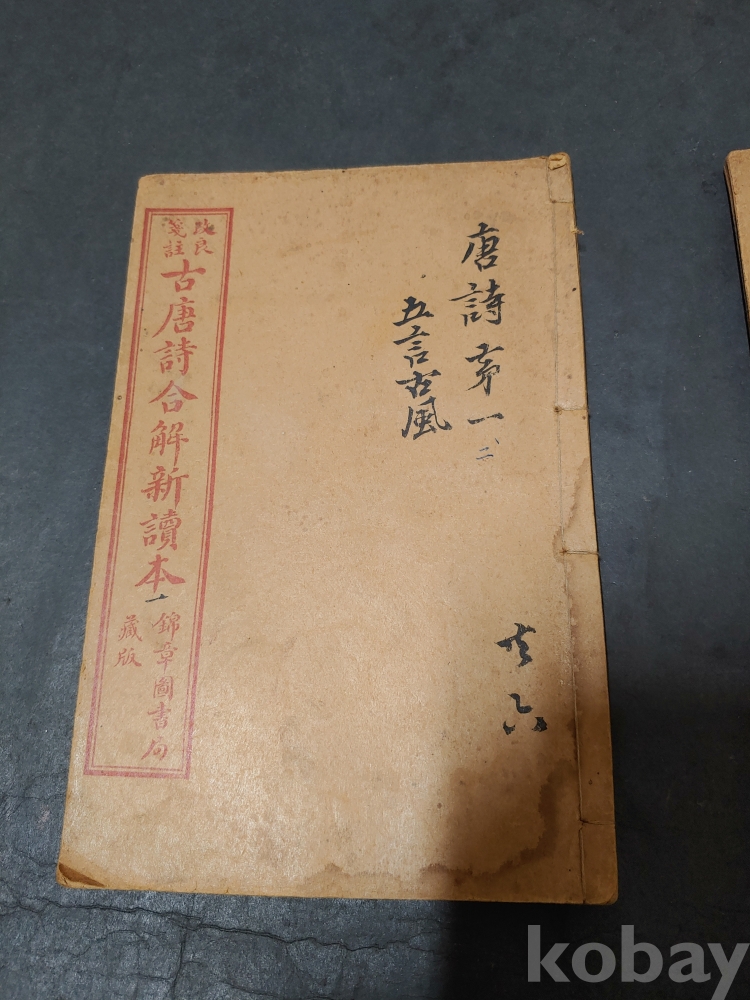 唐詩第一、二
五言古風
共六
改良
箋註
古唐詩合解新讀本
一
錦章圖書局
藏版
kobay